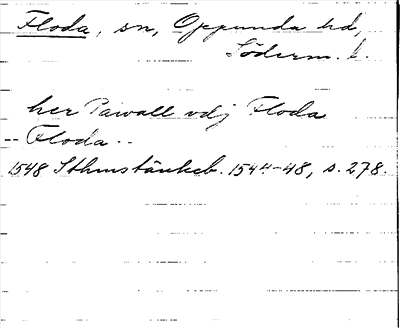 Floda, sn, Oppunda hd,
Söderm. l.
her Pawall vdj Floda
-- Floda --
1548 Sthmstänkeb. 1544-48, s. 278.